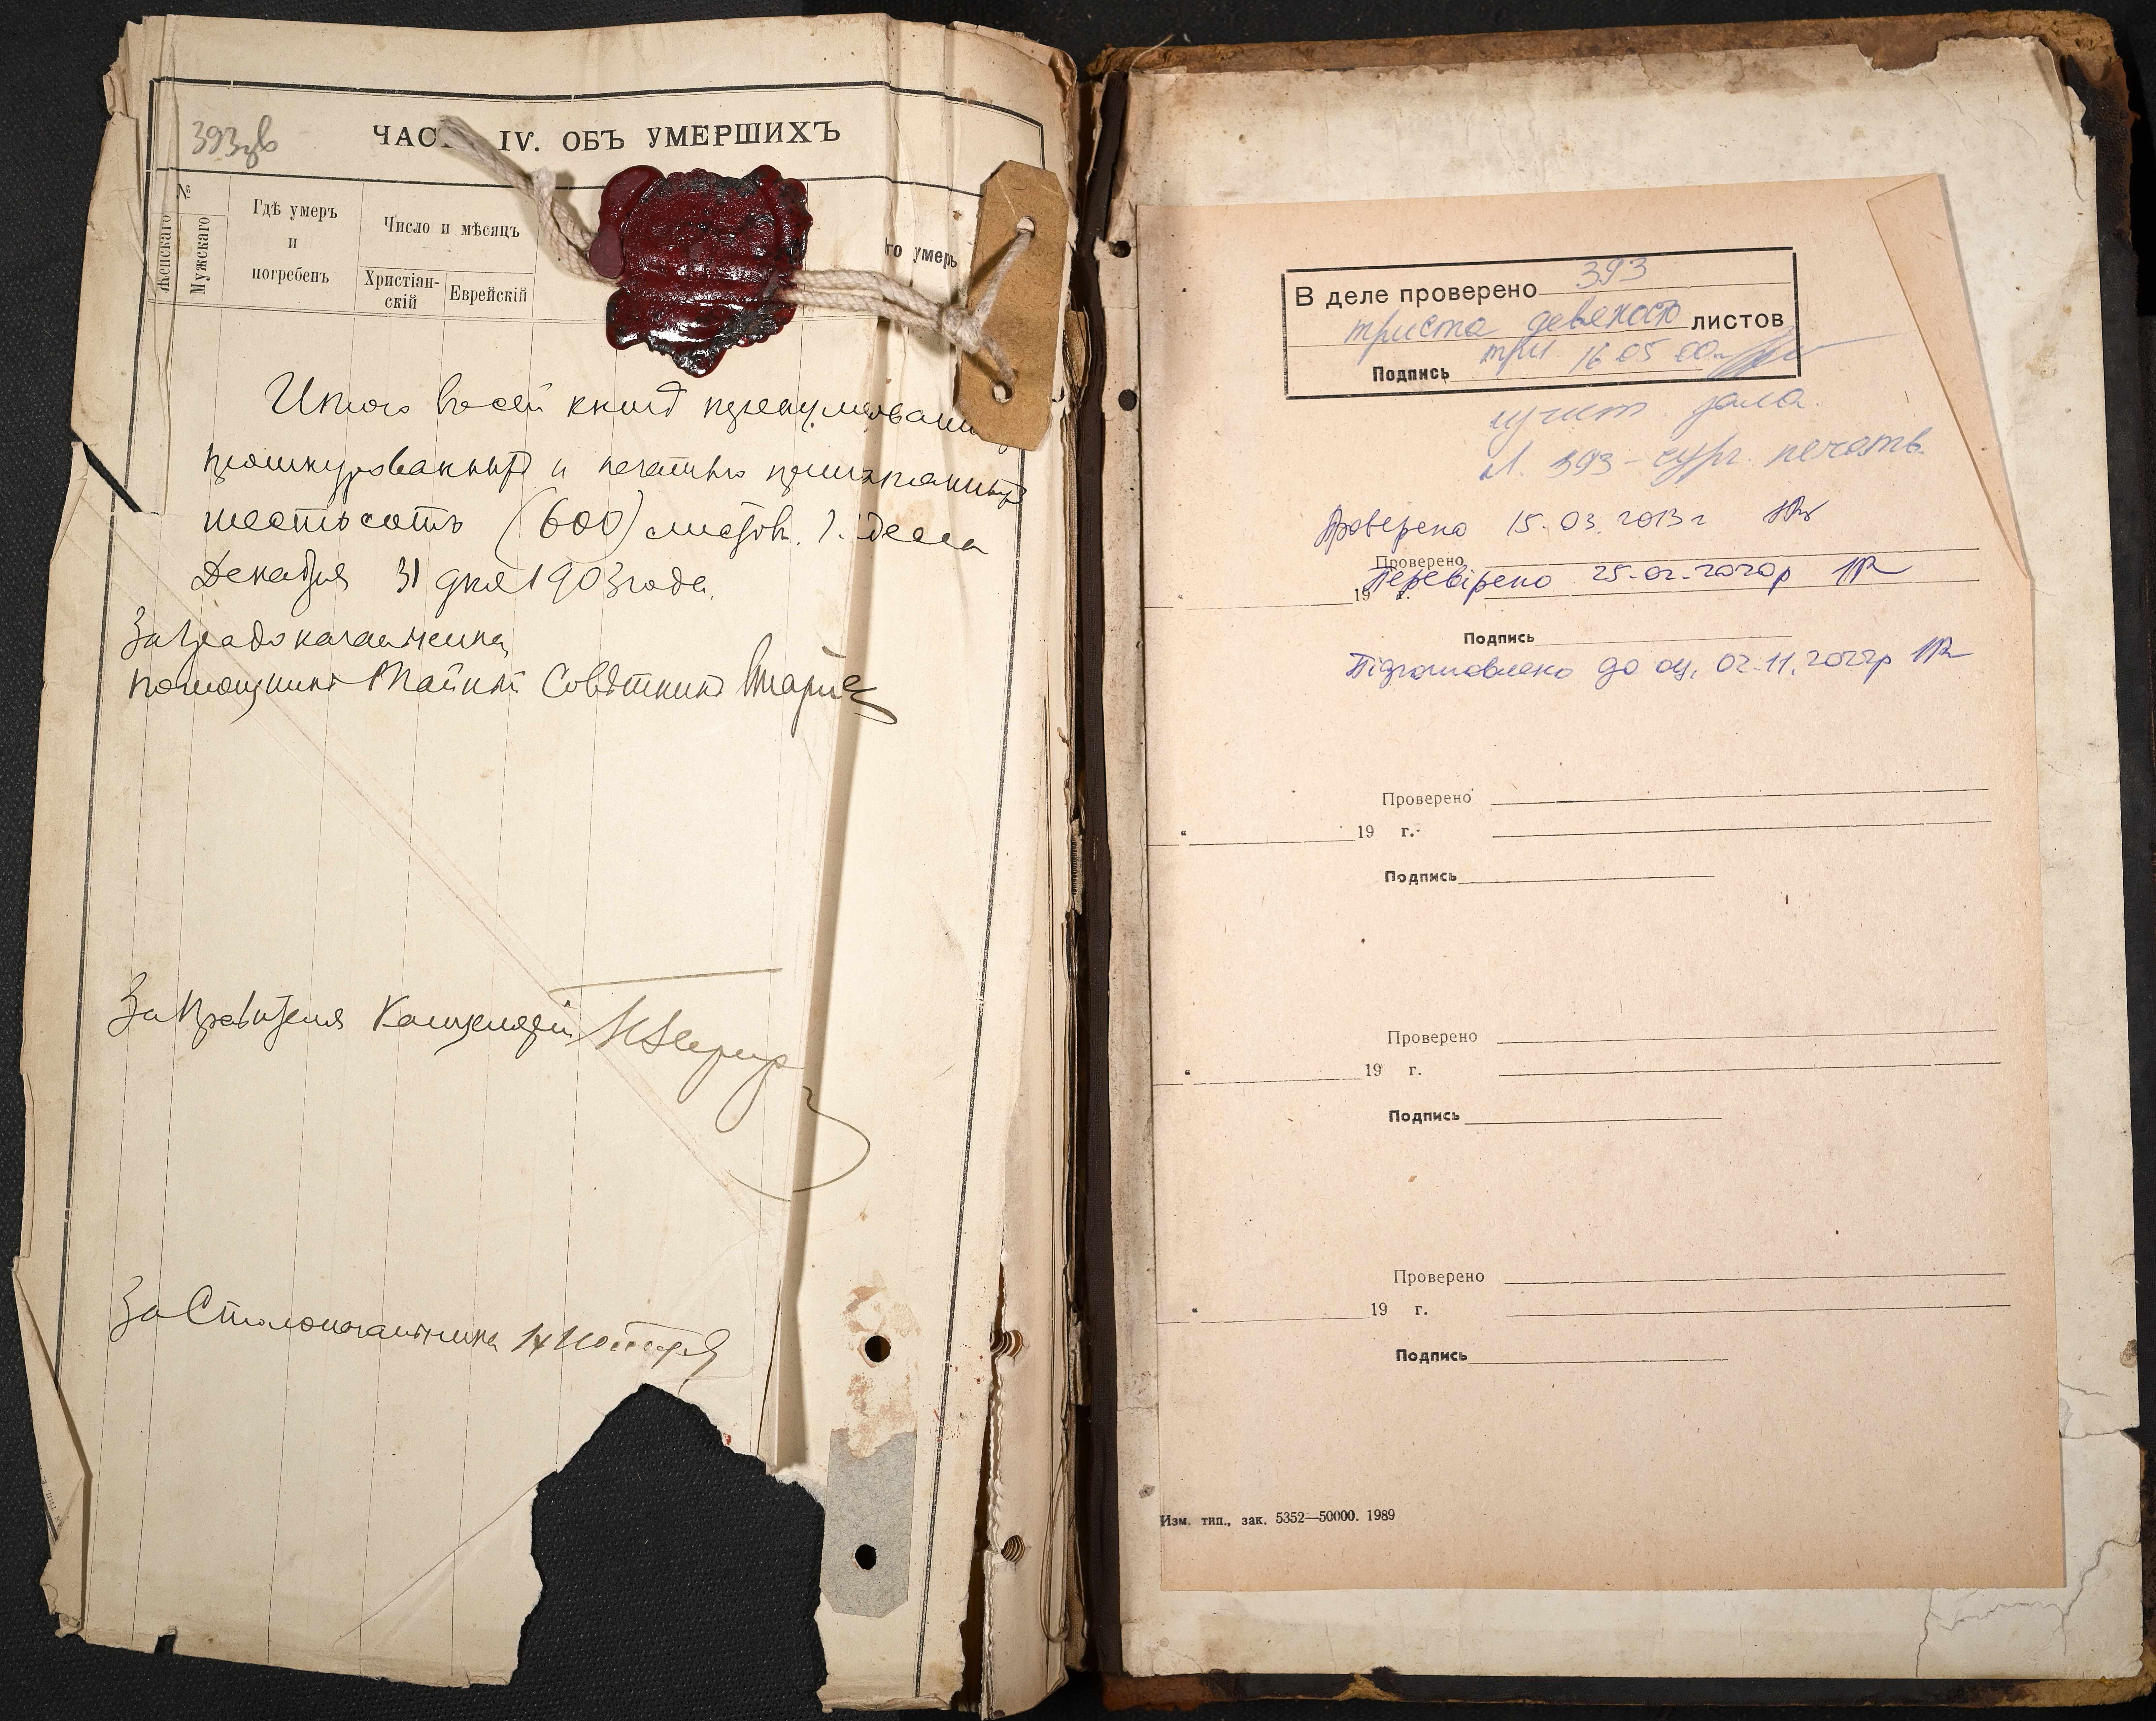 393зв
ЧАС IV. ОБЪ УМЕРШИХЪ
№
Женскаго
Мужскаго
Гдѣ умеръ
и
погребенъ
Число и мѣсяцъ
Христіан-
скій
Еврейскій
го умеръ
Итого въ сей книгѣ
прошнурованныхъ и печатью
шестьсотъ (600) листовъ. Г. Одесса
Декабря 31 дня 1903 года.
За Градоначальника
помощникъ Тайный Совѣтникъ
За Правителя Канцеляріи
За Столоначальника
В деле проверено 393
триста девяносто листов
три 16 05 00
Подпись
л. 393 - сург. печать.
Проверено 15.03.2013 г
Проверено
Перевірено 25.02.2020р
19 г.
Подпись
Підготовлено до оц. 02.11.2022р
Проверено
19 г.
Подпись
Проверено
19 г.
Подпись
Проверено
19 г.
Подпись
Изм. тип., зак. 5352—50000. 1989